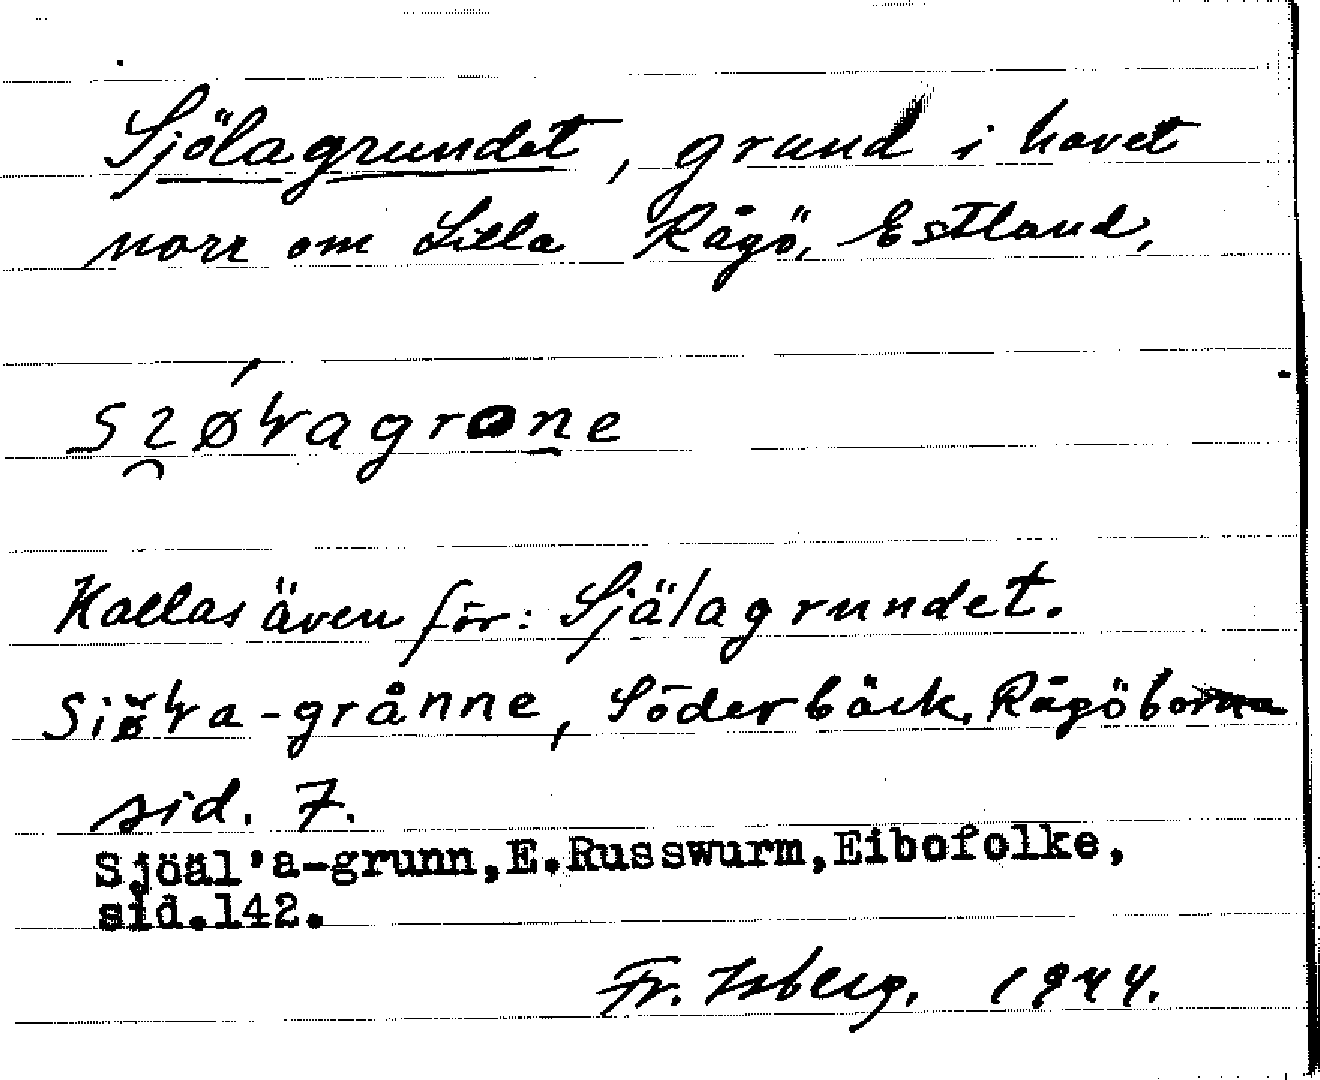 Sjölagrundet, grund i havet
norr om Lilla Rågö, Estland,
Kallas även för: Själagrundet.
-grånne, Söderbäck, Rågöborna
sid. 7.
Sjöäl'a-grunn,E.Russwurm,Eibofolke,
sid.142.
Fr. Isberg. 1944.